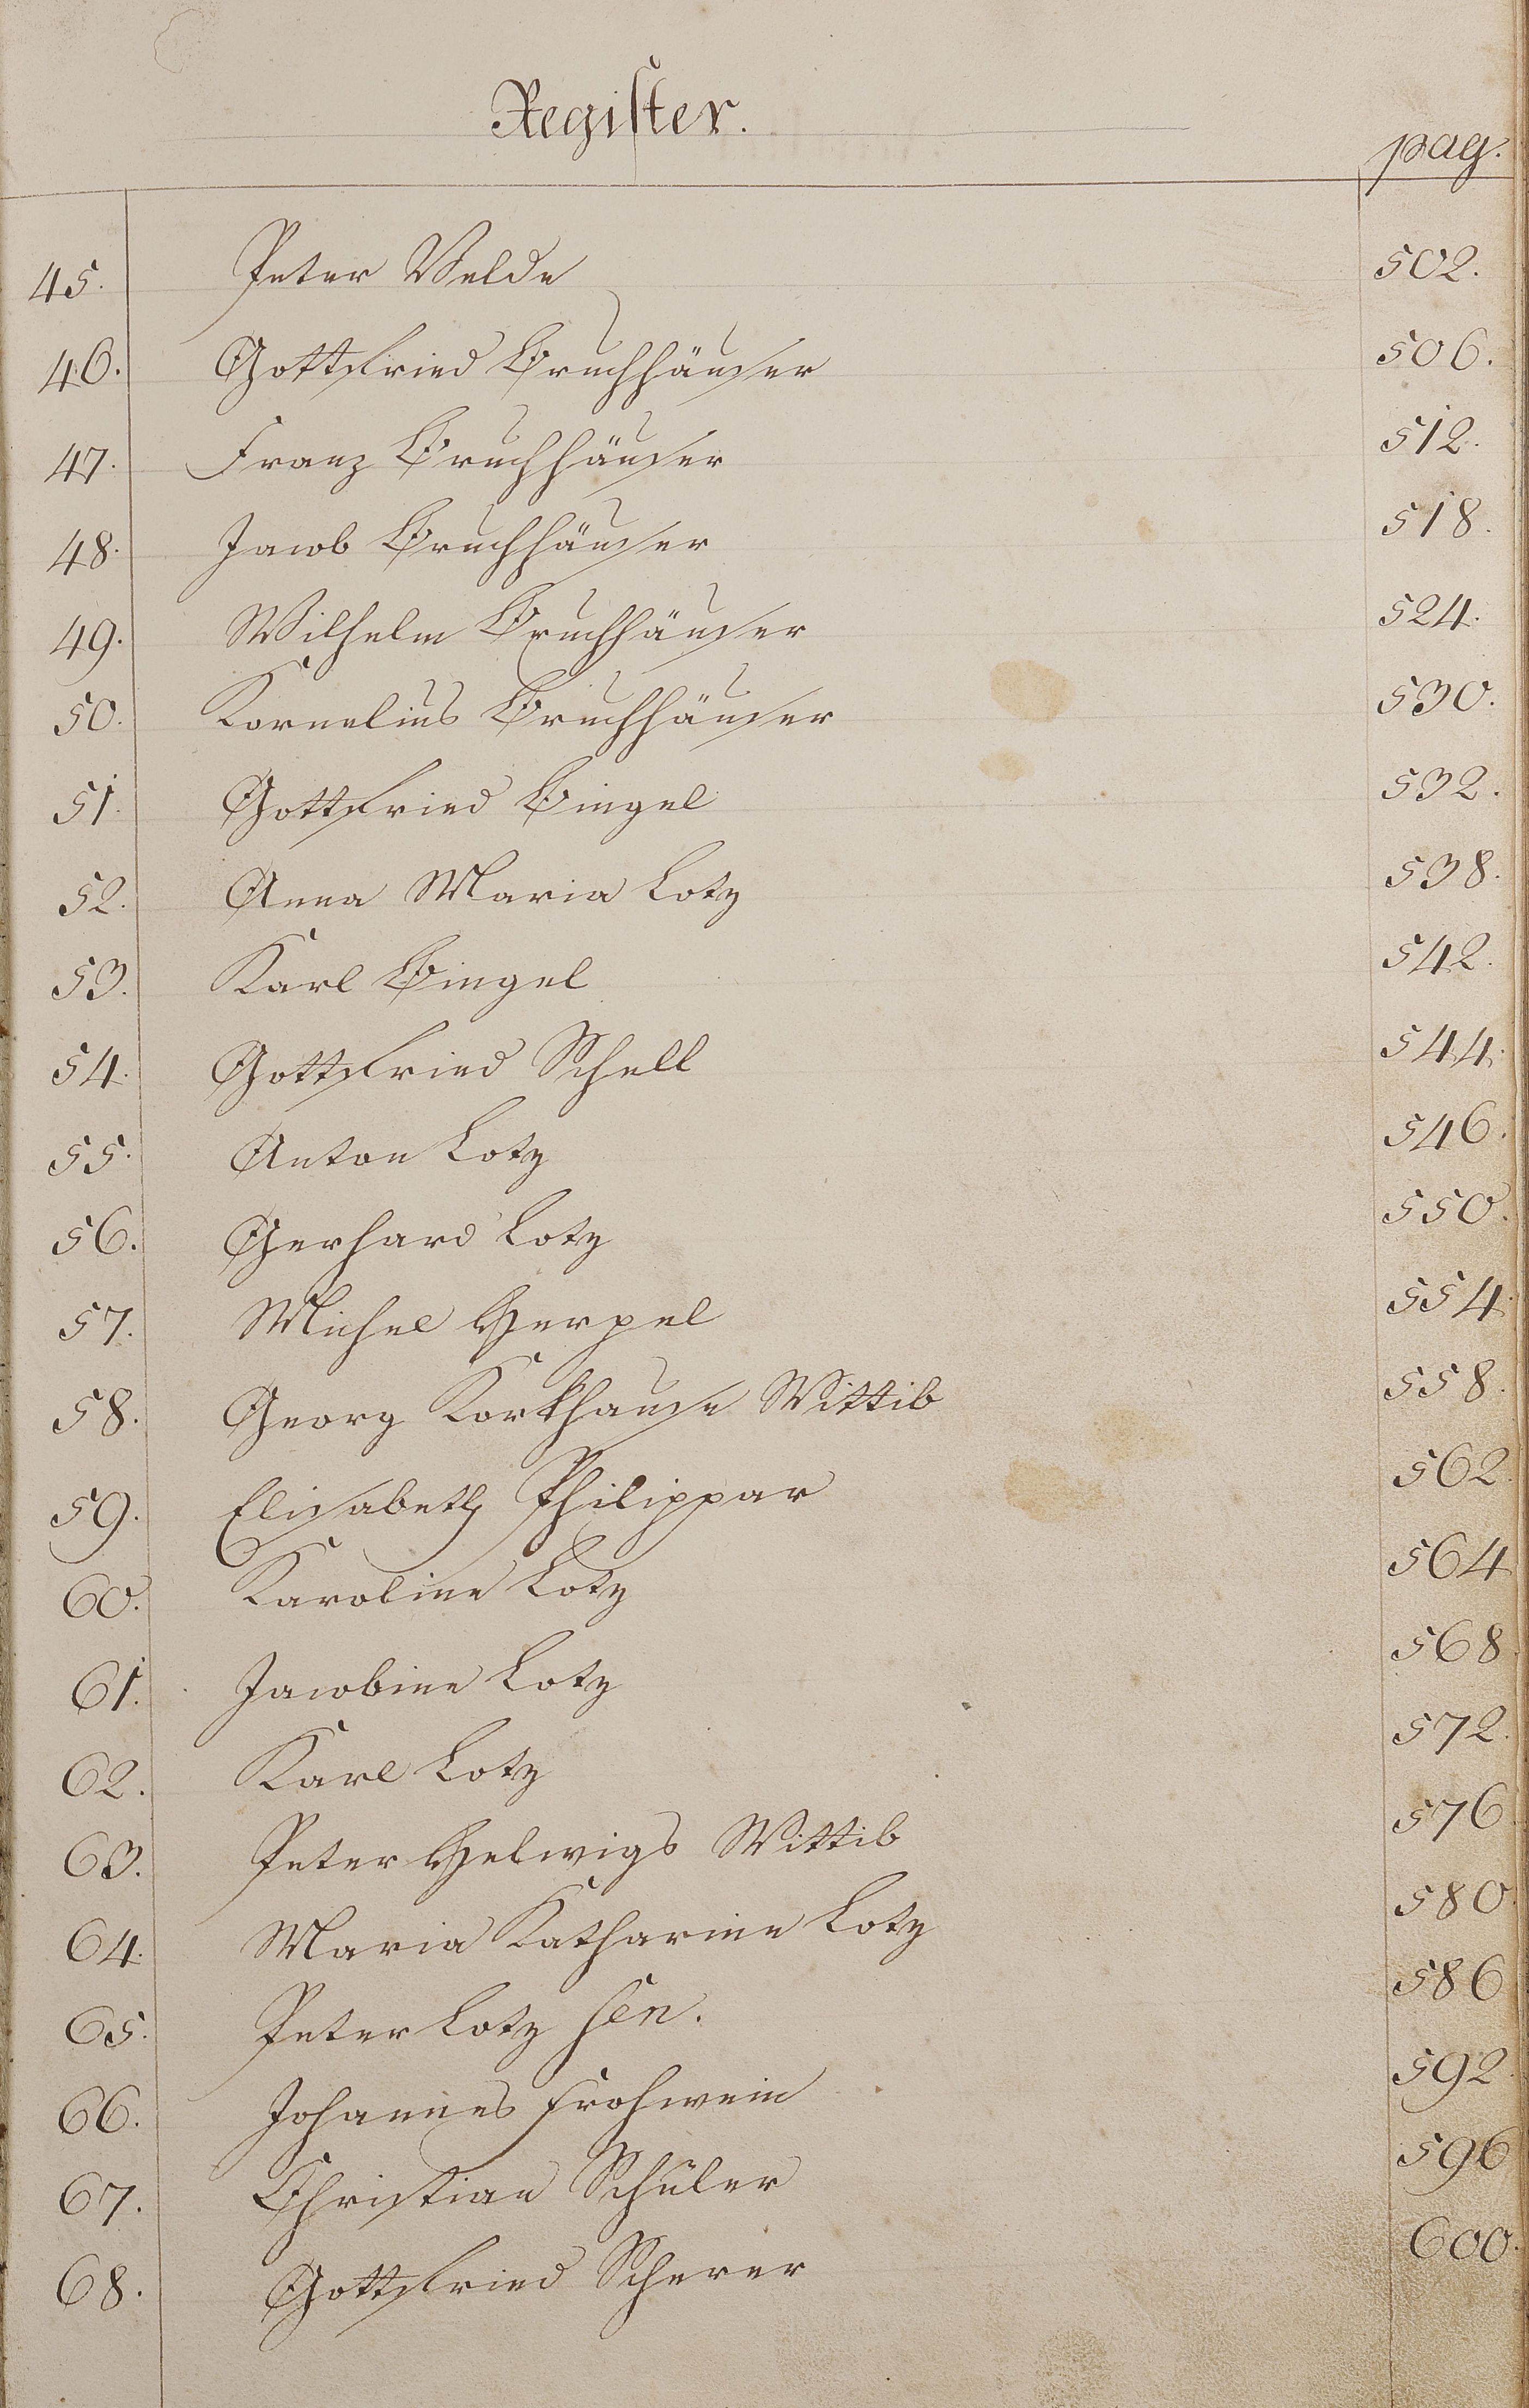 Register.
pag.
45. Peter Velde 502.
46. Gottfried Bruchhäuser 506.
47. Franz Bruchhäuser 512.
48. Jacob Bruchhäuser 518.
49. Wilhelm Bruchhäuser 524.
50. Kornelius Bruchhäuser 530.
51. Gottfried Bingel 532.
52. Anna Maria Lotz 538.
53. Karl Bingel 542.
54. Gottfried Schell 544.
55. Anton Lotz 546.
56. Gerhard Lotz 550.
57. Michel Herpel 554.
58. Georg Korkhause Wittib 558.
59. Elisabeth Philippar 562.
60. Karoline Lotz 564
61. Jacobine Lotz 568.
62. Karl Lotz 572.
63. Peter Helwigs Wittib 576
64. Maria Katharine Lotz 580.
65. Peter Lotz sen. 586
66. Johannes Frohwein 592.
67. Christian Schüler 596
68. Gottfried Scherer 600.